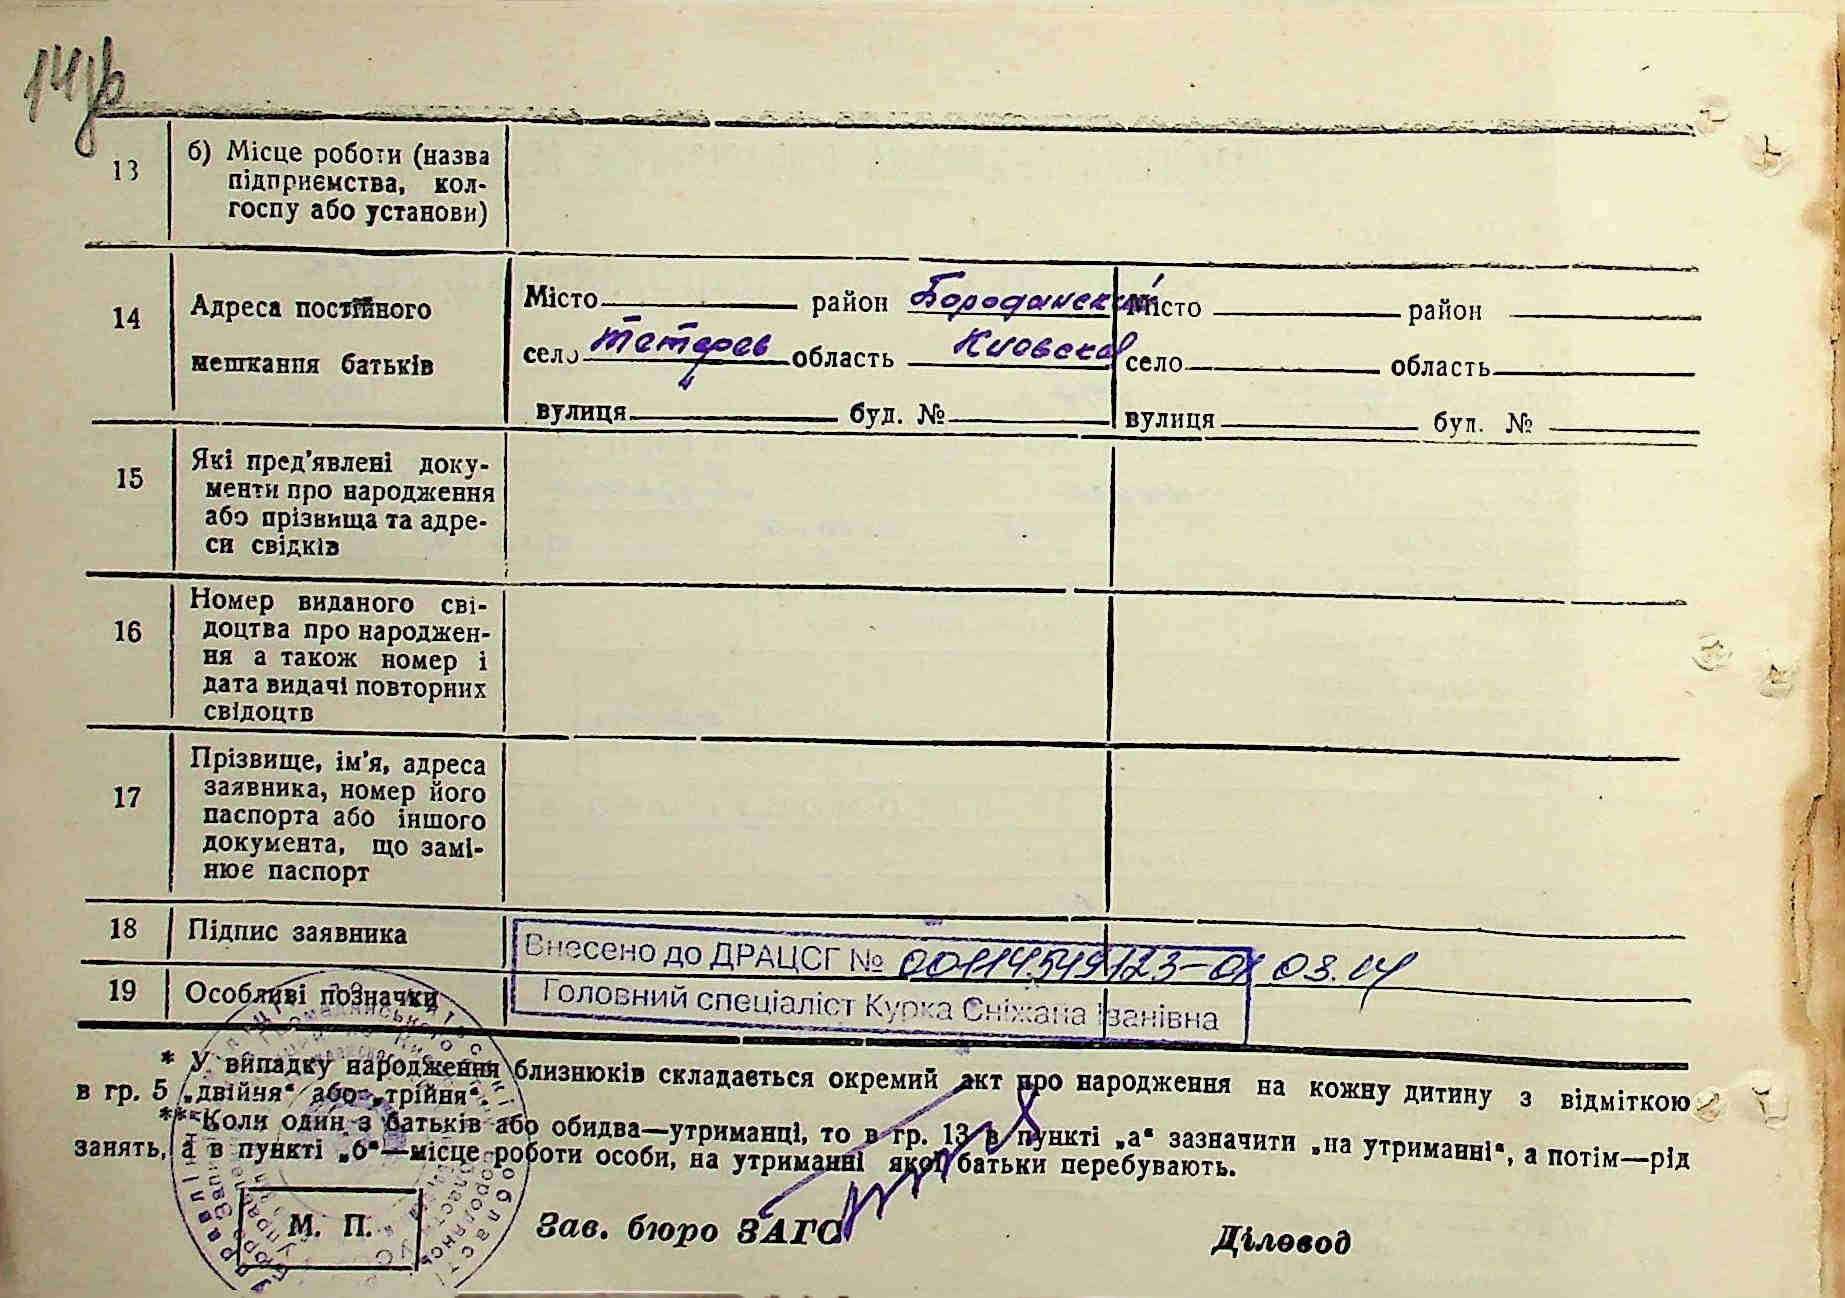 13 б) Місце роботи (назва
підприємства, кол-
госпу або установи)
14 Адреса постійного
мешкання батьків
Місто район Бородянский
село Тетерев область Киевская
вулиця буд. №
Місто район
село область
вулиця буд. №
15 Які пред'явлені доку-
менти про народження
або прізвища та адре-
си свідків
16 Номер виданого сві-
доцтва про народжен-
ня а також номер і
дата видачі повторних
свідоцтв
17 Прізвище, ім'я, адреса
заявника, номер його
паспорта або іншого
документа, що замі-
нює паспорт
18 Підпис заявника
Внесено до ДРАЦСГ №
19 Особливі позначки
Головний спеціаліст Курка Сніжана Іванівна
* У випадку народження близнюків складається окремий акт про народження на кожну дитину з відміткою
в гр. 5 „двійня“ або „трійня“.
*** Коли один з батьків або обидва—утриманці, то в гр. 13 в пункті „а“ зазначити „на утриманні“, а потім—рід
занять, а в пункті „б“—місце роботи особи, на утриманні якої батьки перебувають.
М. П.
Зав. бюро ЗАГС
Діловод